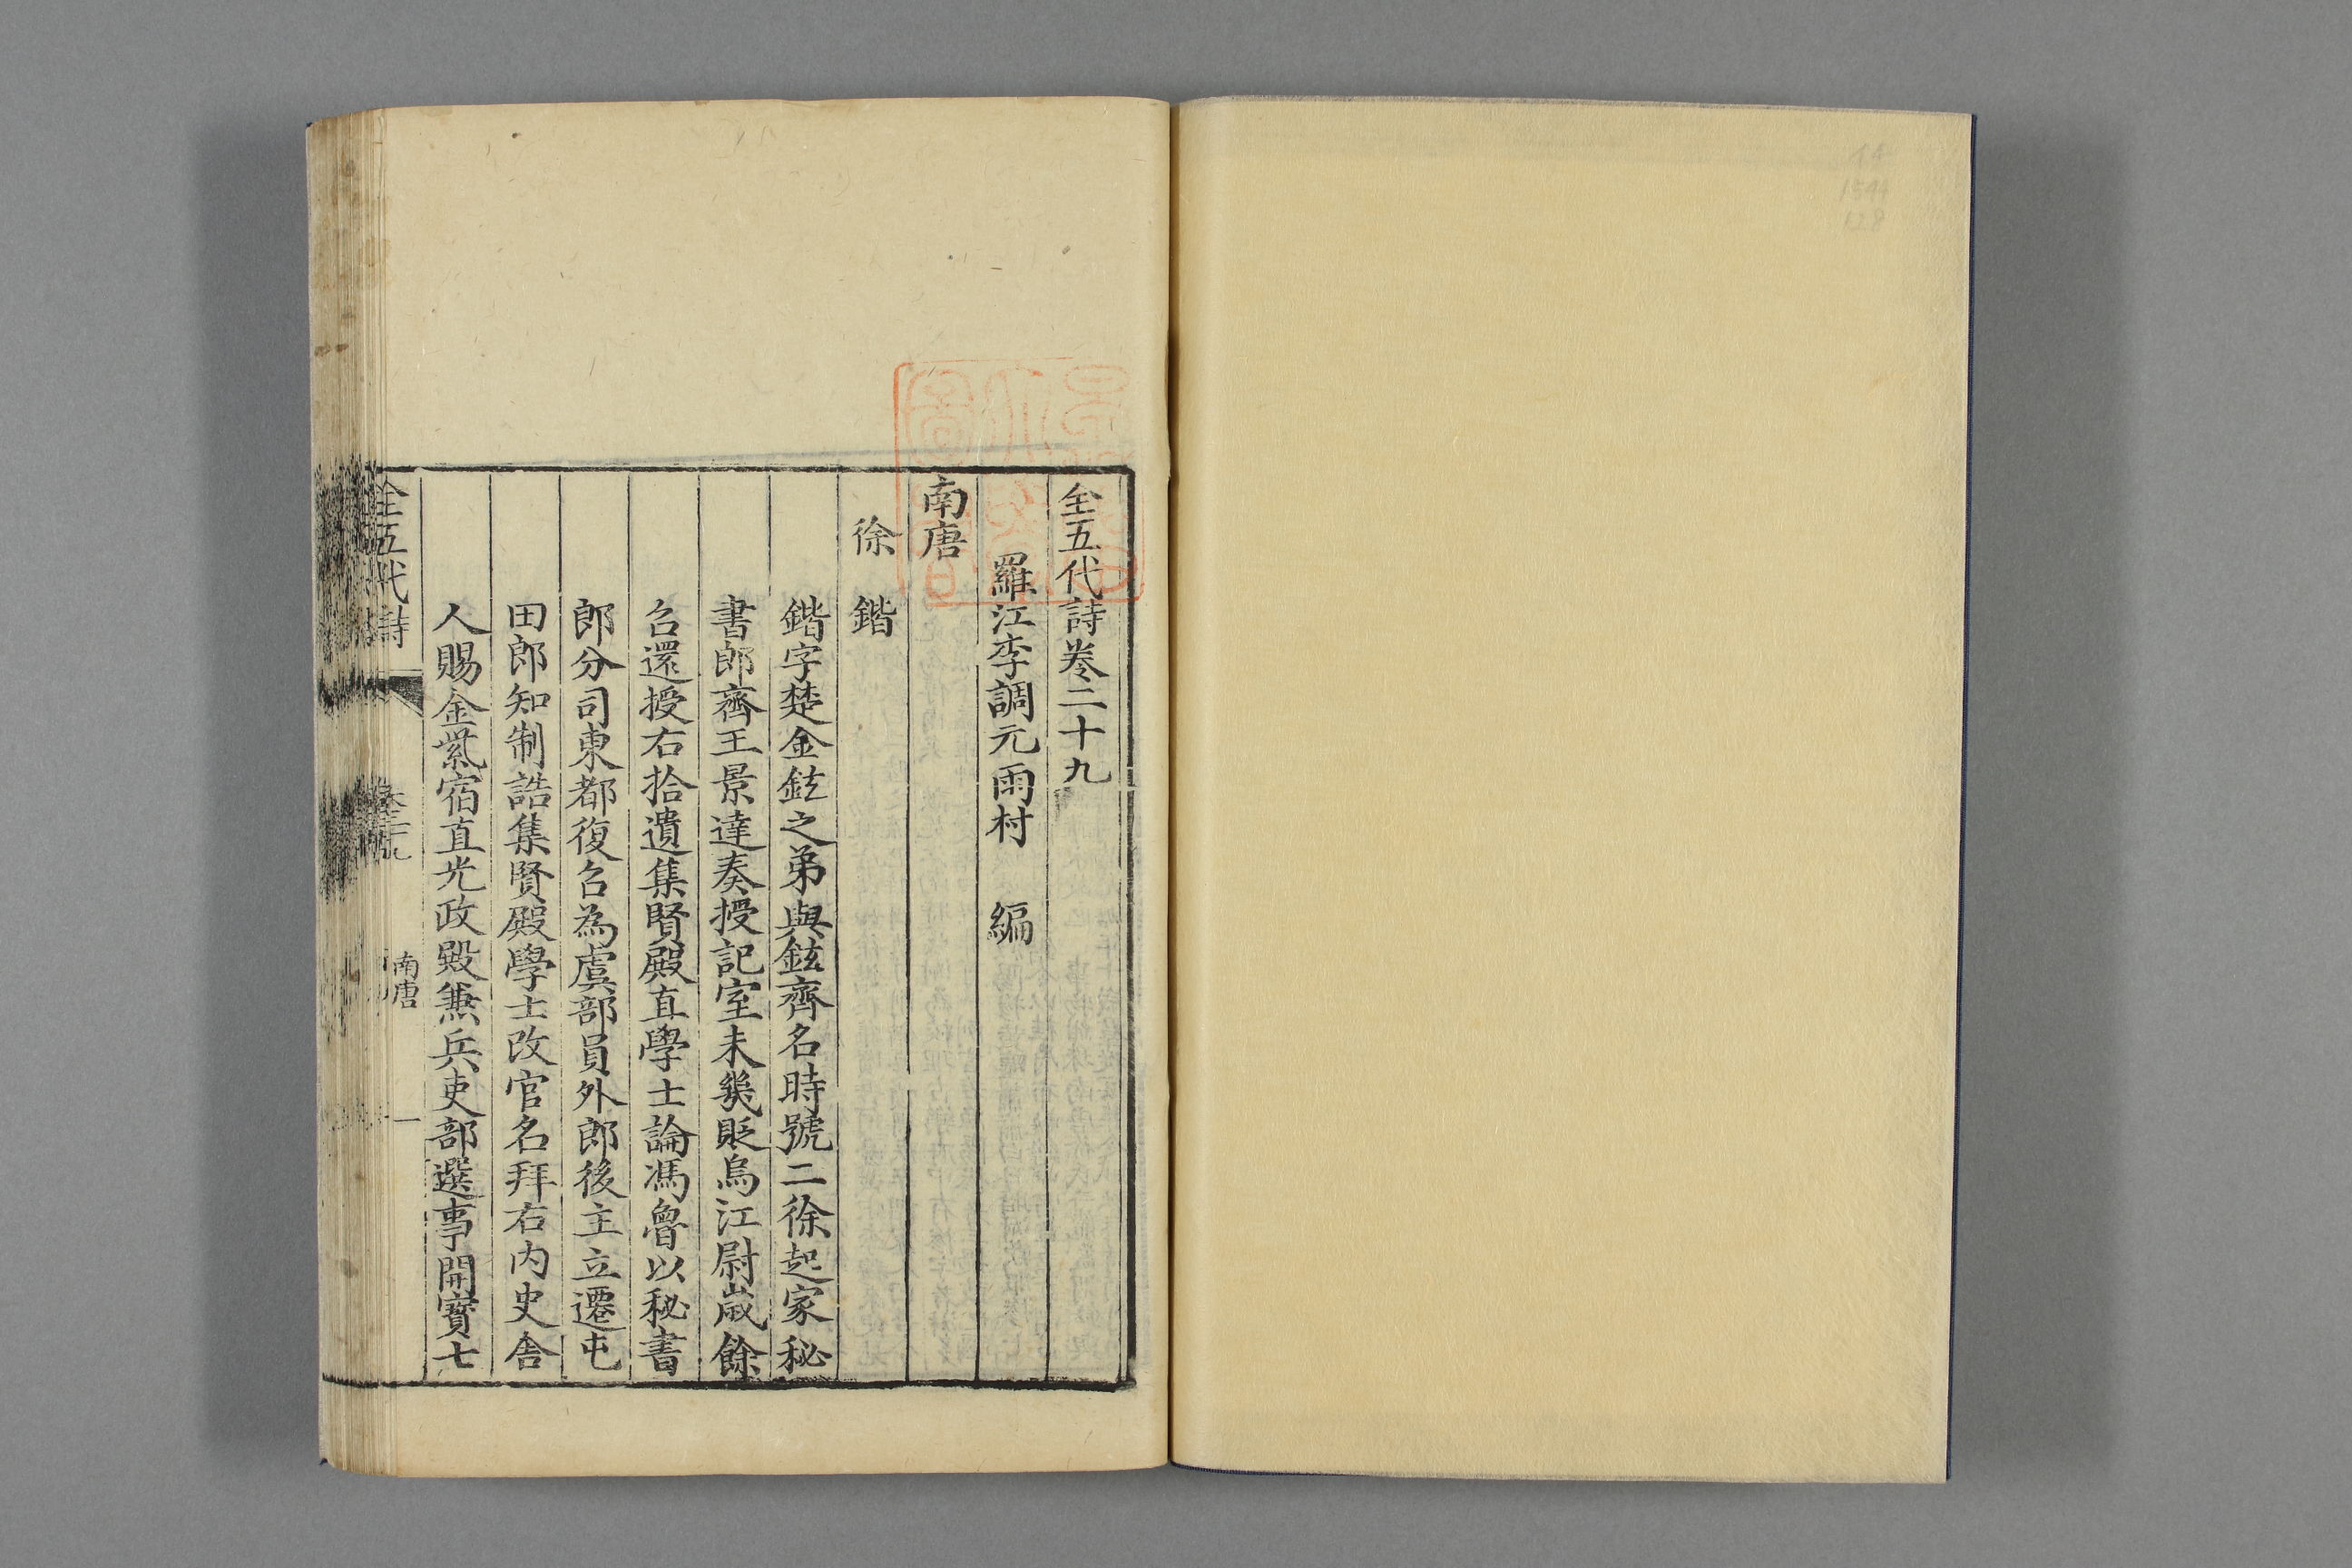 全五代詩卷二十九
羅江李調元雨村 編
南唐
徐鍇
鍇字楚金鉉之弟與鉉齊名時號二徐起家秘
書郎齊王景達奏授記室未幾貶烏江尉歲餘
召還授右拾遺集賢殿直學士論馮魯以秘書
郎分司東都復召為虞部員外郎後主立遷屯
田郎知制誥集賢殿學士改官名拜右内史舍
人賜金紫宿直光政殿兼兵吏部選事開寶七
全五代詩
南唐
一